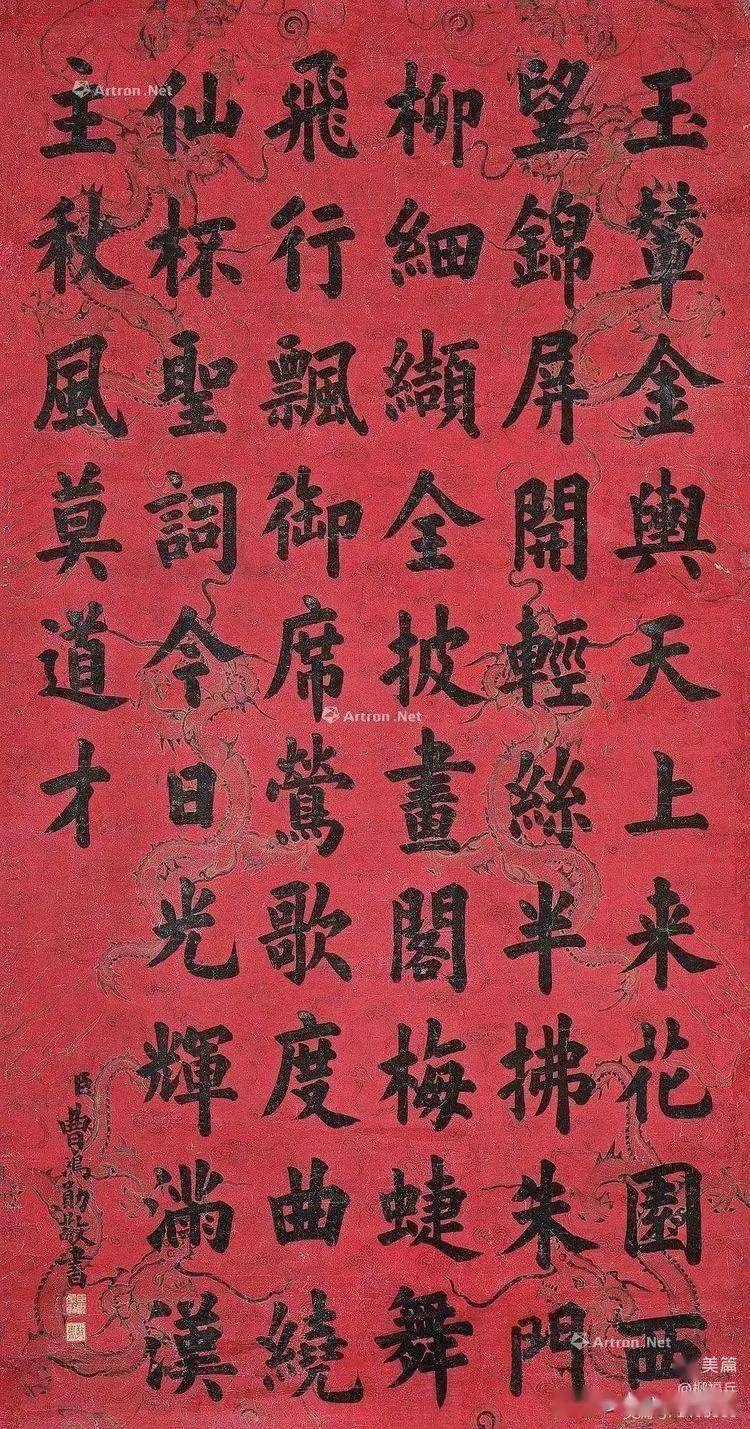 玉輦金輿天上来花園西
望錦屏開輕絲半拂朱門
柳細纈全披畫閣梅蜨舞
飛行飄御席鶯歌度曲繞
仙杯聖詞今日光輝滿漢
主秋風莫道才
臣曹鴻勛敬書
Artron.Net
Artron.Net
Artron.Net
Artron.Net
美篇